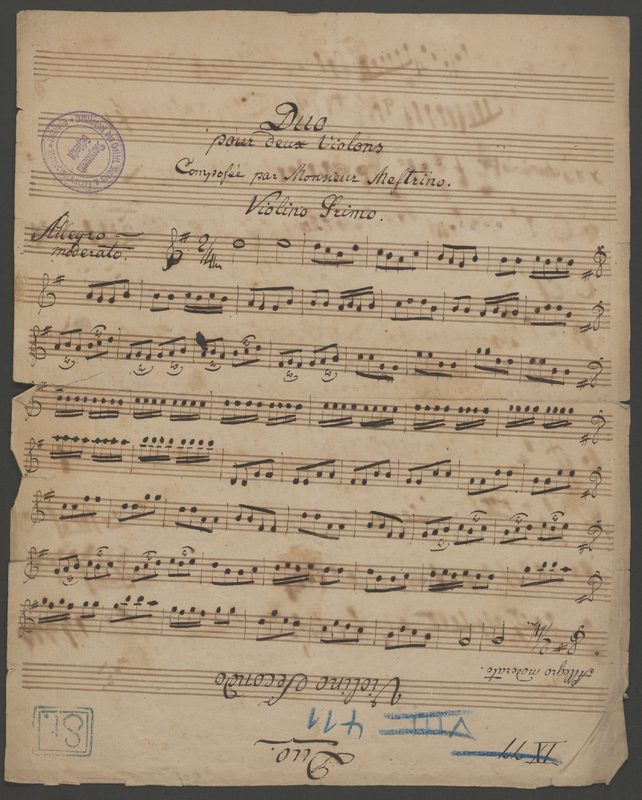 Duo
pour deux Violons
Composée par Monsieur Mestrino.
Violino Primo.
Allegro
moderato.
Allegro moderato.
Violino Secondo
Duo.
VIII 411
IX 77
St.